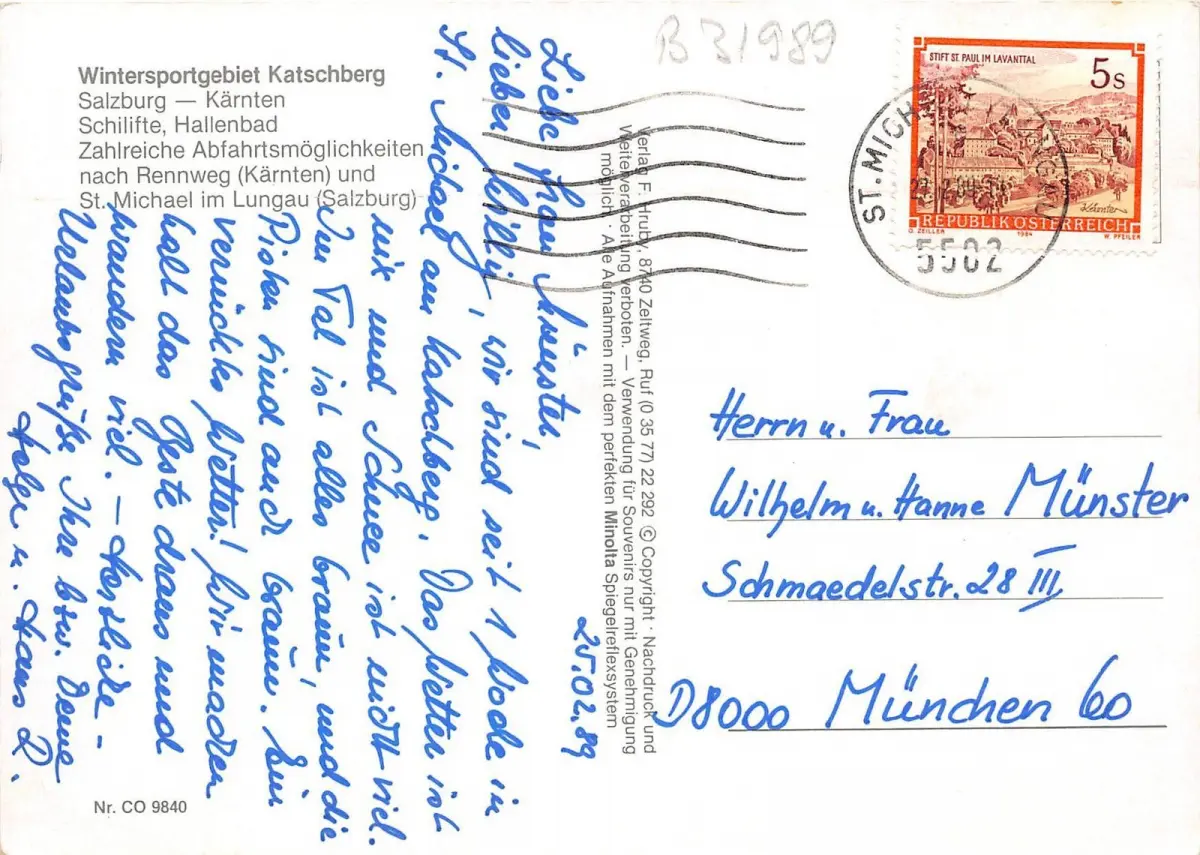 B 31989
Wintersportgebiet Katschberg
Salzburg — Kärnten
Schilifte, Hallenbad
Zahlreiche Abfahrtsmöglichkeiten
nach Rennweg (Kärnten) und
St. Michael im Lungau (Salzburg)
25.02.89
Liebe Frau Münster,
lieber Willy, wir sind seit 1 Woche in
St. Michael am Katschberg. Das Wetter ist
mix und Schnee ist nicht viel.
Im Tal ist alles braun, und die
Pisten sind auch braun. Ein
verrücktes Wetter! Wir machen
halt das Beste draus und
wandern viel. — Herzliche
Urlaubsgrüße Ihre bzw. Deine
Helga u. Hans D.
Nr. CO 9840
Verlag F. Hruby, 8740 Zeltweg, Ruf (0 35 77) 22 292 © Copyright · Nachdruck und
Weiterverarbeitung verboten. — Verwendung für Souvenirs nur mit Genehmigung
möglich · Alle Aufnahmen mit dem perfekten Minolta Spiegelreflexsystem
STIFT ST. PAUL IM LAVANTTAL
5s
Kärnten
REPUBLIK ÖSTERREICH
O. ZEILLER 1984 W. PFEILER
ST. MICH
5582
Herrn u. Frau
Wilhelm u. Hanne Münster
Schmaedelstr. 28 III
D8000 München 60